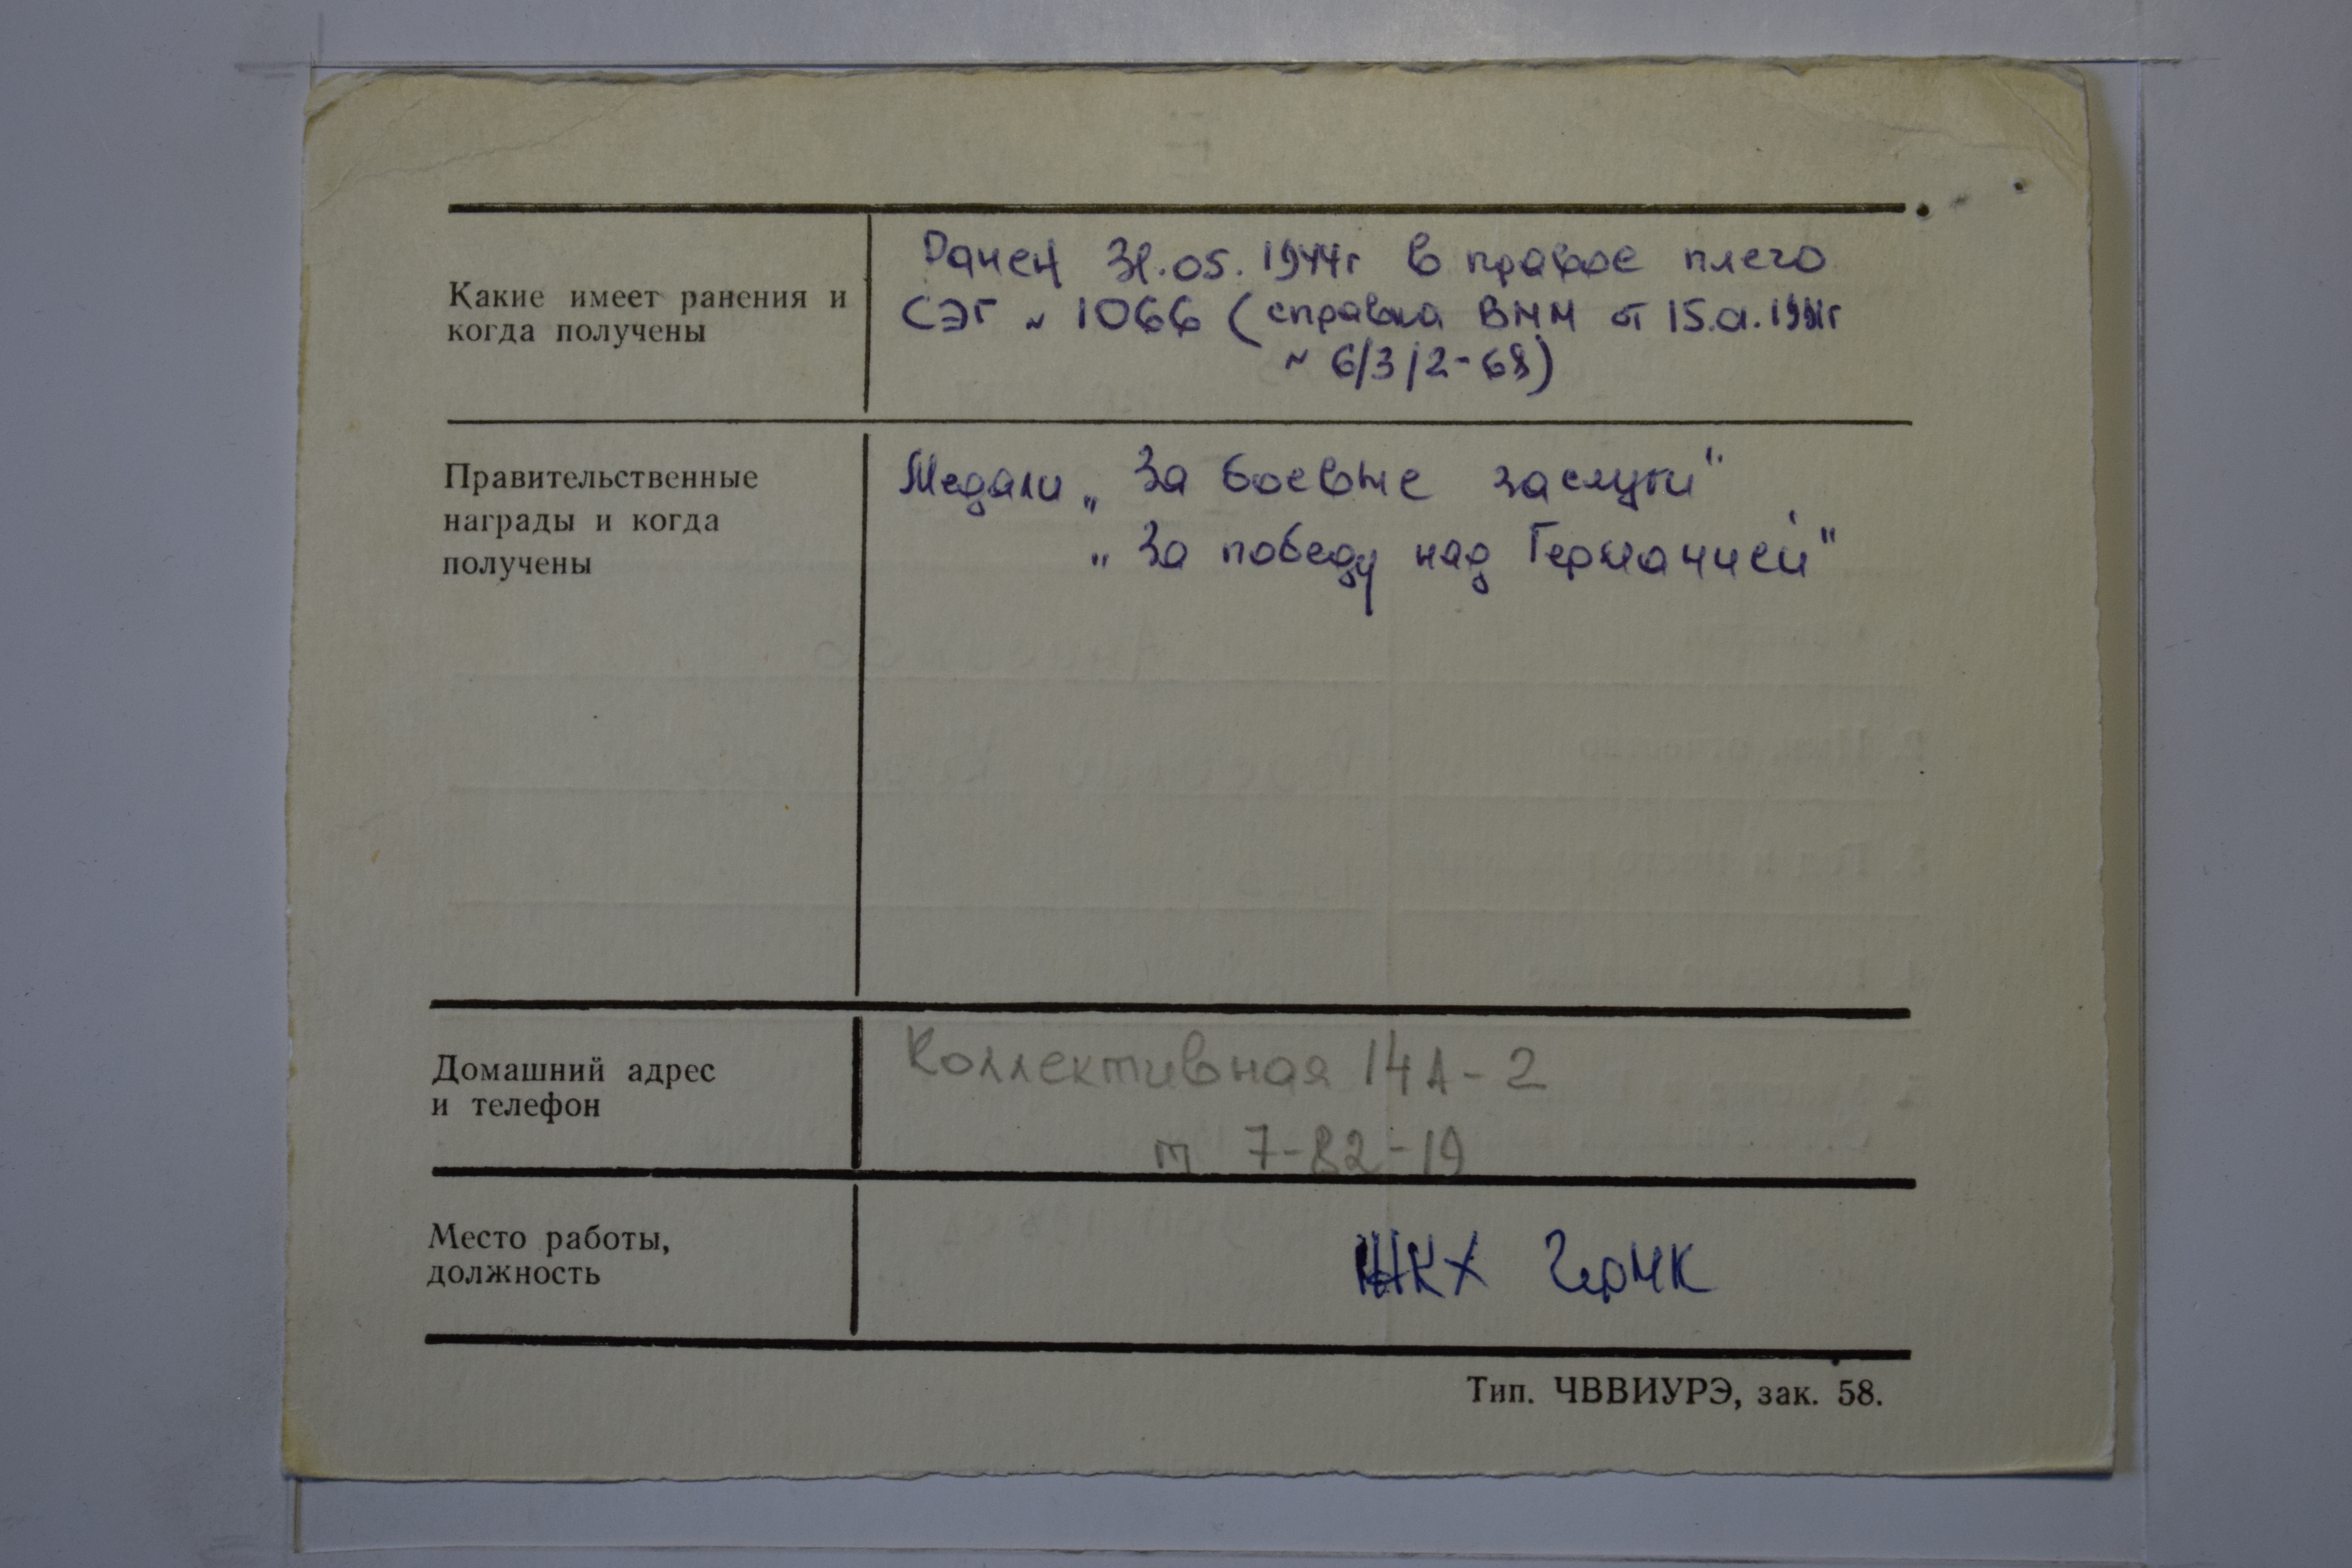 Какие имеет ранения и
когда получены
Ранен 31.05.1944г в правое плечо
СЭГ № 1066 (справка ВММ от 15.01.1991г
№ 6/3/2-68)
Правительственные
награды и когда
получены
Медали „За боевые заслуги"
„За победу над Германией"
Домашний адрес
и телефон
Коллективная 14А-2
т 7-82-19
Место работы,
должность
ЖКХ ЧерМК
Тип. ЧВВИУРЭ, зак. 58.